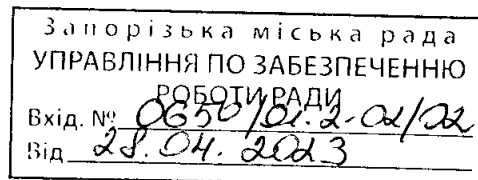 Запорізька міська рада
УПРАВЛІННЯ ПО ЗАБЕЗПЕЧЕННЮ
РОБОТИ РАДИ
Вхід. № 0650/01.2-02/02
Від 28.04.2023